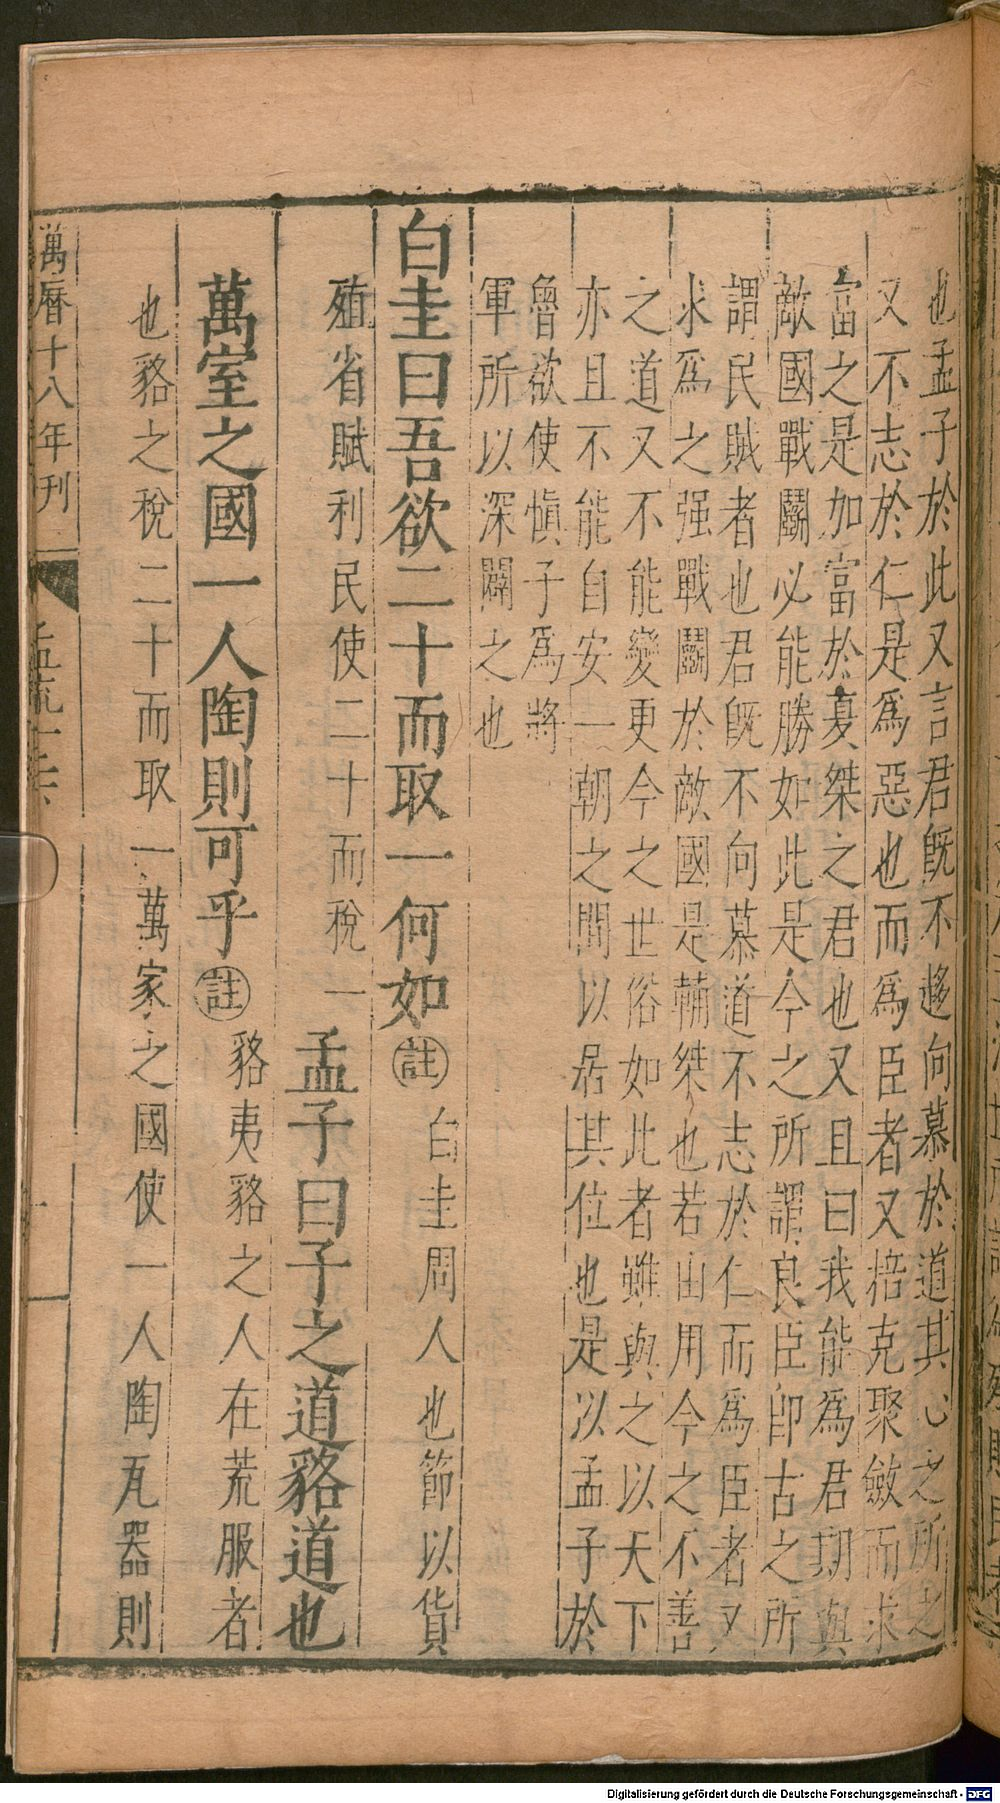 也孟子於此又言君既不趍向慕於道其心之所之
又不志於仁是爲惡也而爲臣者又掊克聚斂而求
富之是加富於夏桀之君也又且曰我能爲君期與
敵國戰鬭必能勝如此是今之所謂良臣卽古之所
謂民賊者也君既不向慕道不志於仁而爲臣者又
求爲之强戰鬭於敵國是輔桀也若由用今之不善
之道又不能變更今之世俗如此者雖與之以天下
亦且不能自安一朝之間以居其位也是以孟子於
魯欲使愼子爲將
軍所以深闢之也
白圭曰吾欲二十而取一何如註白圭周人也節以貨
殖省賦利民使二十而稅一孟子曰子之道貉道也
萬室之國一人陶則可乎註貉夷貉之人在荒服者
也貉之稅二十而取一萬家之國使一人陶瓦器則
萬曆十八年刊
Digitalisierung gefördert durch die Deutsche Forschungsgemeinschaft - DFG